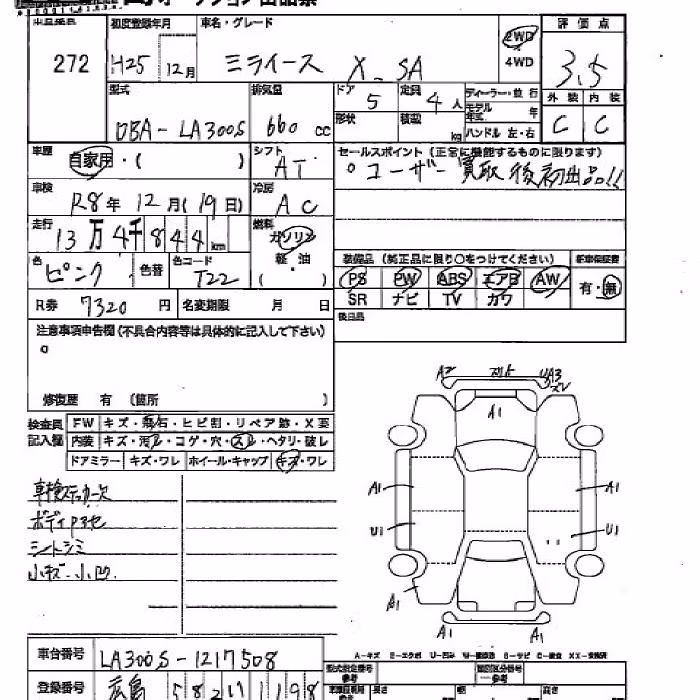 272
初度登録年月 H25 12月
車名・グレード ミライース X SA
2WD
4WD
評価点 3.5
型式 DBA-LA300S
排気量 660 cc
ドア 5
定員 4人
形状
積載 kg
ディーラー・並行
モデル年式 年
ハンドル 左・右
外装 内装
C C
車歴 自家用・( )
シフト AT
セールスポイント(正常に機能するものに限ります)
ユーザー買取後初出品!!
車検 R8年 12月(19日)
冷房 AC
走行 13万4千844km
燃料 ガソリン
軽油
( )
色 ピンク 色替
色コード T22
装備品(純正品に限り○をつけてください)
新車保証書
PS PW ABS エアB AW
SR ナビ TV カワ
有・無
R券 7320円
名変期限 月 日
後日品
注意事項申告欄(不具合内容等は具体的に記入して下さい)
修復歴 有 (箇所 )
検査員記入欄
FW キズ・飛石・ヒビ割・リペア跡・X要
内装 キズ・汚レ・コゲ・穴・スレ・ヘタリ・破レ
ドアミラー キズ・ワレ ホイール・キャップ キズ・ワレ
A2 UA3
A1
A1 A1
U1 U1
A1 A1
A1 A1
車検ステッカー欠
ボディPヨセ
シートシミ
小キズ・小凹
車台番号 LA300S-1217508
登録番号 広島 582
型式指定番号 参考
類別区分番号 参考
長さ 幅 高さ